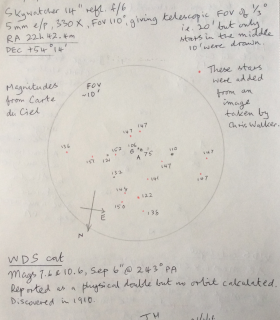 Skywatcher 14" refl. f/6
5mm e/p, 330X, FOV 10', giving telescopic FOV of ½°
RA 22h 42.4m
DEC +54° 14'
i.e. 20' but only
stars in the middle
10' were drawn.
Magnitudes
from Carte
du Ciel
FOV
~10'
• These stars
were added
from an
image
taken by
Chris Walker.
147
147
136
151
152
B
A
75
110
147
132
147
149
122
150
136
N
E
WDS cat
Mags 7.6 & 10.6, Sep 6" @ 243° PA
Reported as a physical double but no orbit calculated.
Discovered in 1910.